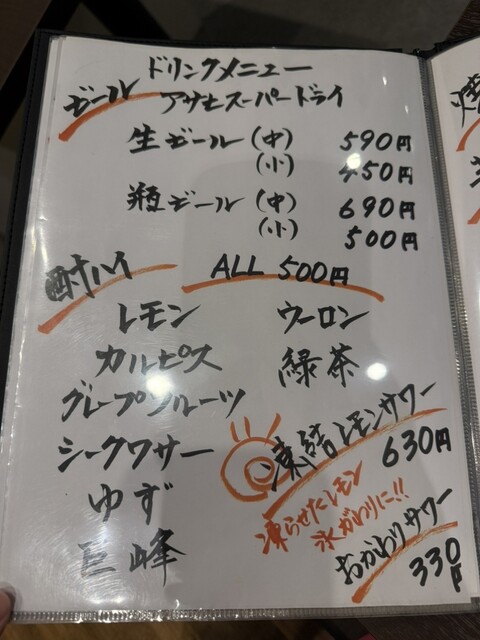 ドリンクメニュー
ビール アサヒスーパードライ
生ビール (中) 590円
(小) 450円
瓶ビール (中) 690円
(小) 500円
酎ハイ ALL 500円
レモン ウーロン
カルピス 緑茶
グレープフルーツ
シークワサー
ゆず
巨峰
凍結レモンサワー
630円
凍らせたレモン
氷がわりに!!
おかわりサワー
330円